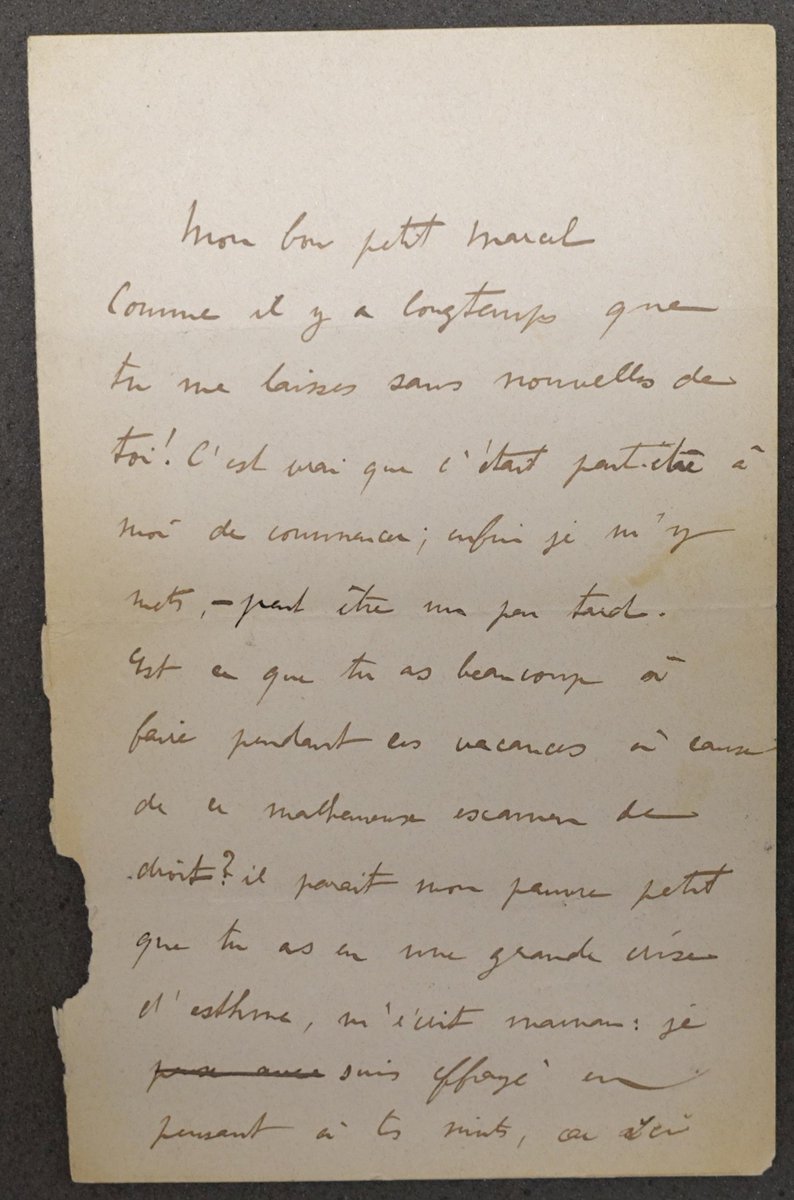 Mon bon petit Marcel
Comme il y a longtemps que
tu me laisses sans nouvelles de
toi! C'est vrai que c'était peut-être à
moi de commencer; enfin je m'y
mets, - peut être un peu tard.
Est ce que tu as beaucoup à
faire pendant ces vacances à cause
de ce malheureux examen de
droit? il parait mon pauvre petit
que tu as eu une grande crise
d'asthme, m'écrit maman: je
suis effrayé en
pensant à tes nuits, car